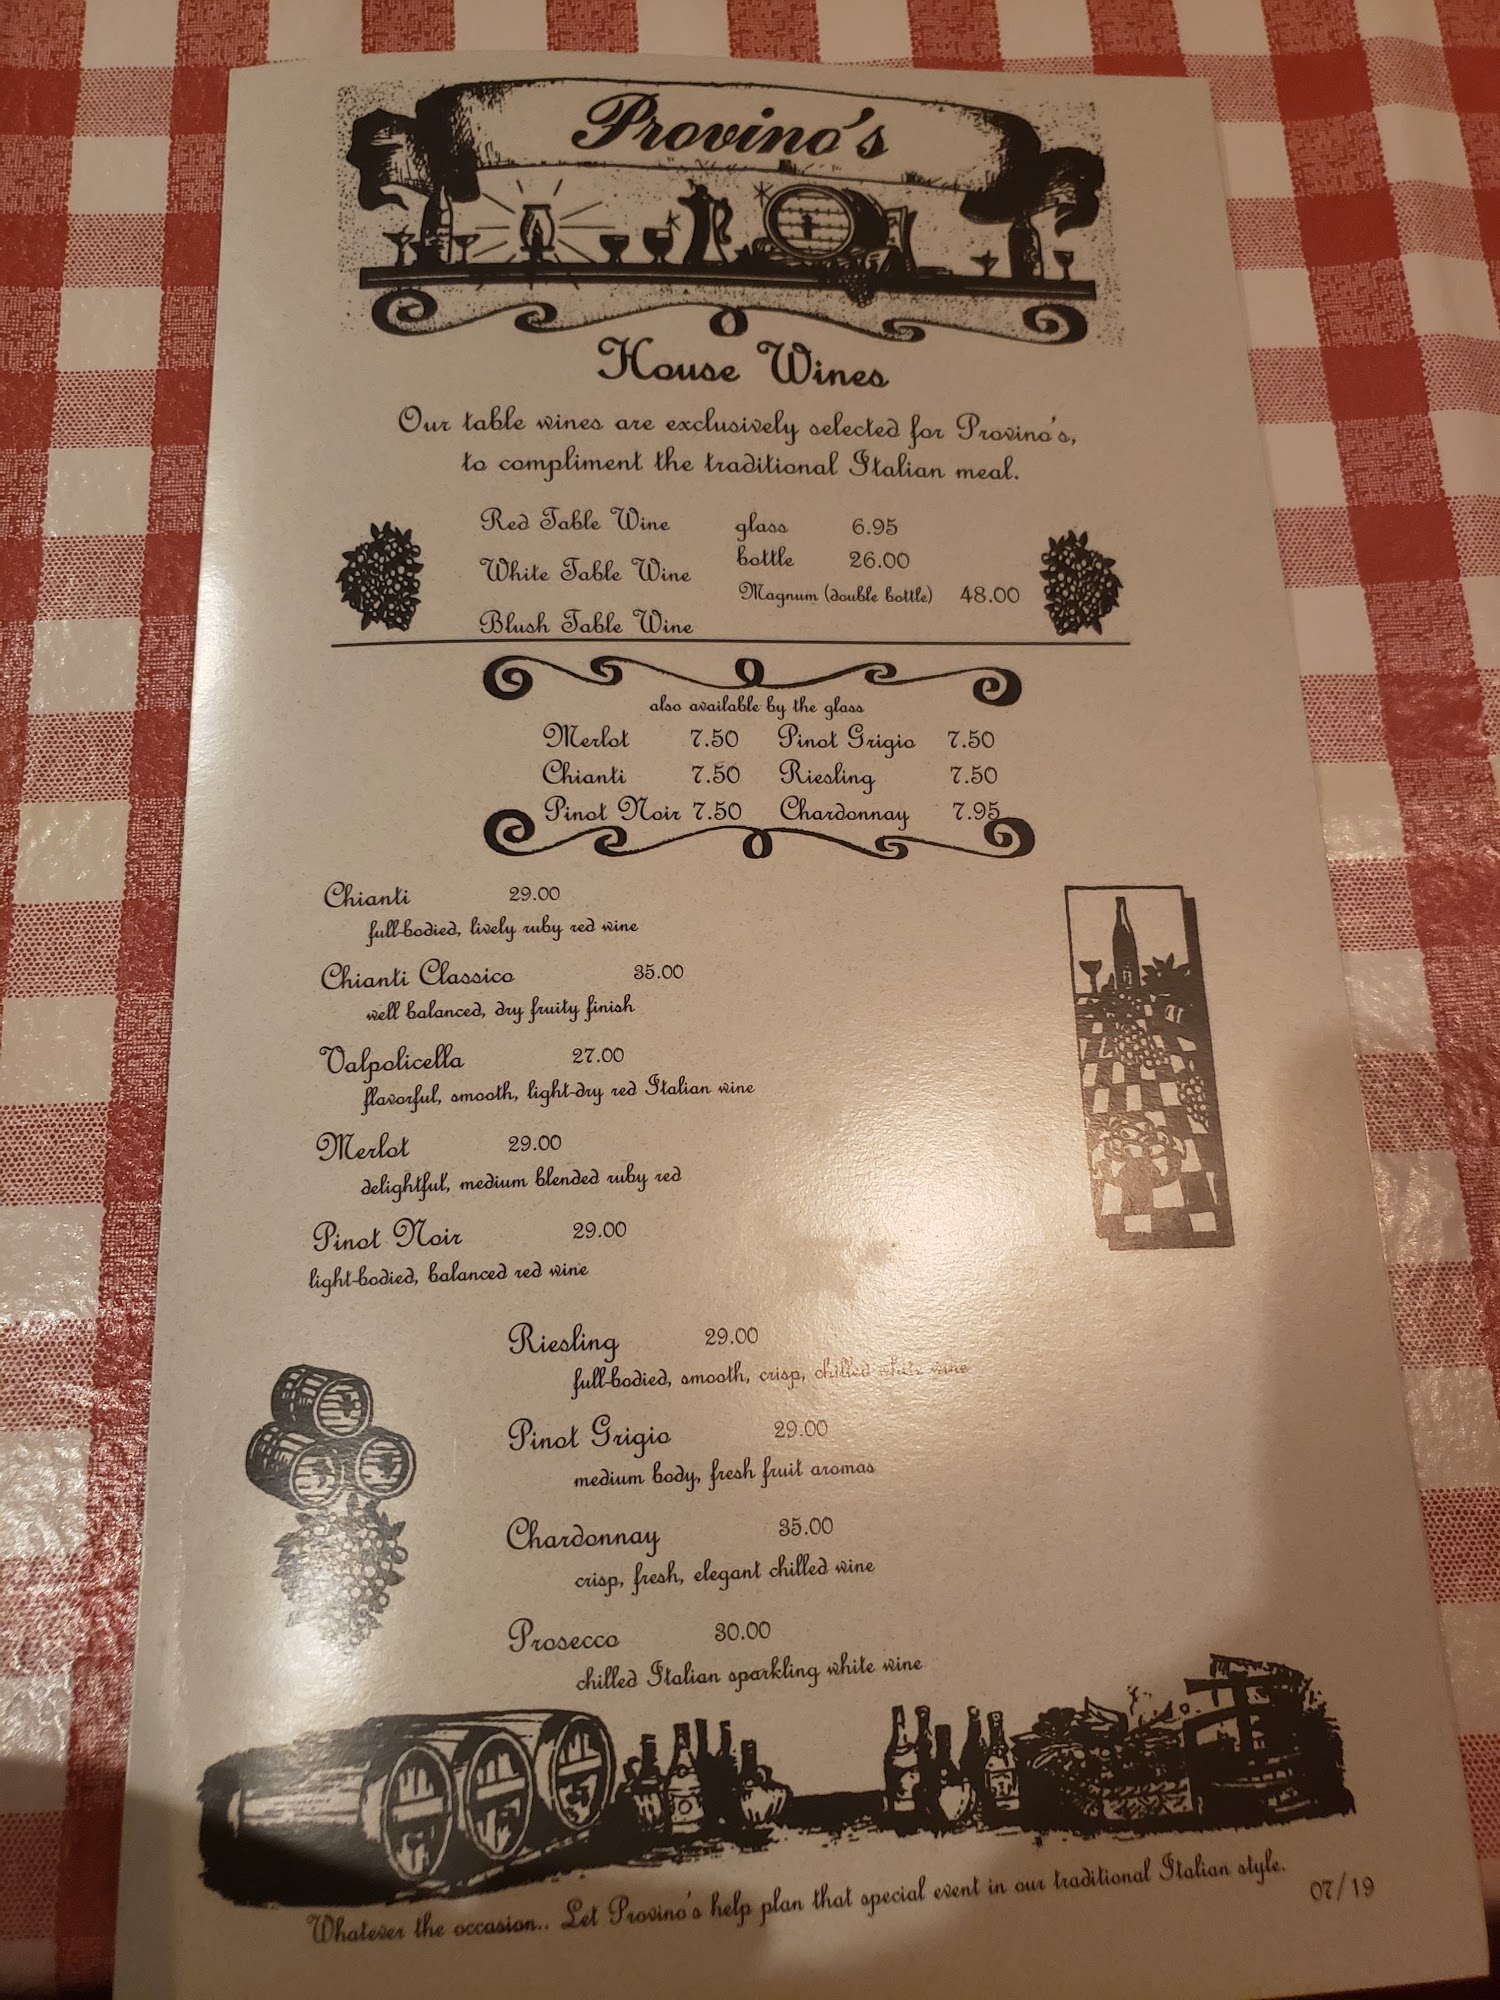 Provino's
House Wines
Our table wines are exclusively selected for Provino's,
to compliment the traditional Italian meal.
Red Table Wine
White Table Wine
Blush Table Wine
glass 6.95
bottle 26.00
Magnum (double bottle) 48.00
also available by the glass
Merlot 7.50 Pinot Grigio 7.50
Chianti 7.50 Riesling 7.50
Pinot Noir 7.50 Chardonnay 7.95
Chianti 29.00
full-bodied, lively ruby red wine
Chianti Classico 35.00
well balanced, dry fruity finish
Valpolicella 27.00
flavorful, smooth, light-dry red Italian wine
Merlot 29.00
delightful, medium blended ruby red
Pinot Noir 29.00
light-bodied, balanced red wine
Riesling 29.00
full-bodied, smooth, crisp, chilled white wine
Pinot Grigio 29.00
medium body, fresh fruit aromas
Chardonnay 35.00
crisp, fresh, elegant chilled wine
Prosecco 30.00
chilled Italian sparkling white wine
Whatever the occasion.. Let Provino's help plan that special event in our traditional Italian style.
07/19